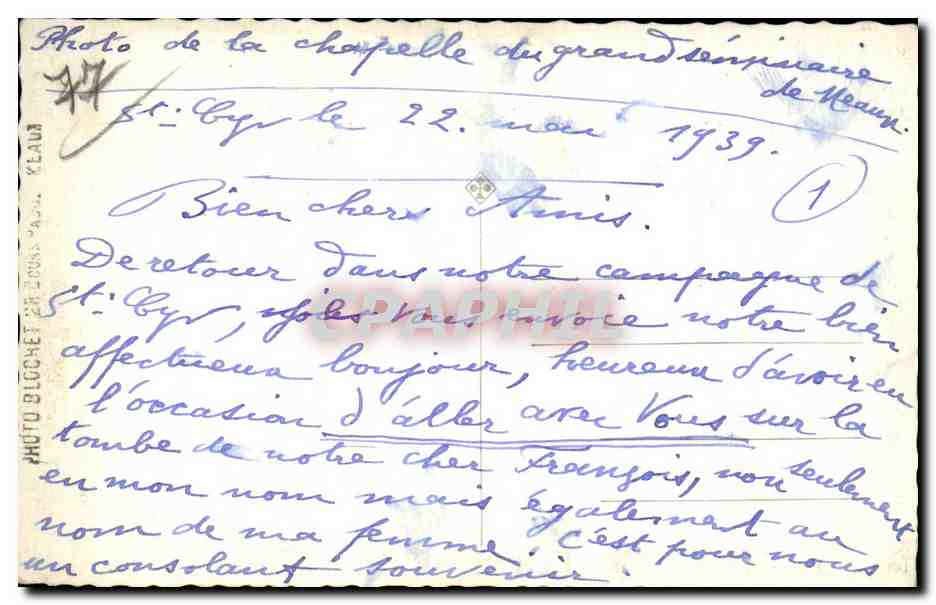 Photo de la chapelle du grand séminaire
de Meaux.
77
St: Cyr le 22. mai 1939.
1
Bien chers Amis.
De retour dans notre campagne de
St: Cyr, vous envoie notre bien
affectueux bonjour, heureux d'avoir eu
l'occasion d'aller avec Vous sur la
tombe de notre cher François, non seulement
en mon nom mais également au
nom de ma femme, c'est pour nous
un consolant souvenir.
PHOTO BLOCHET
CPAPHIL